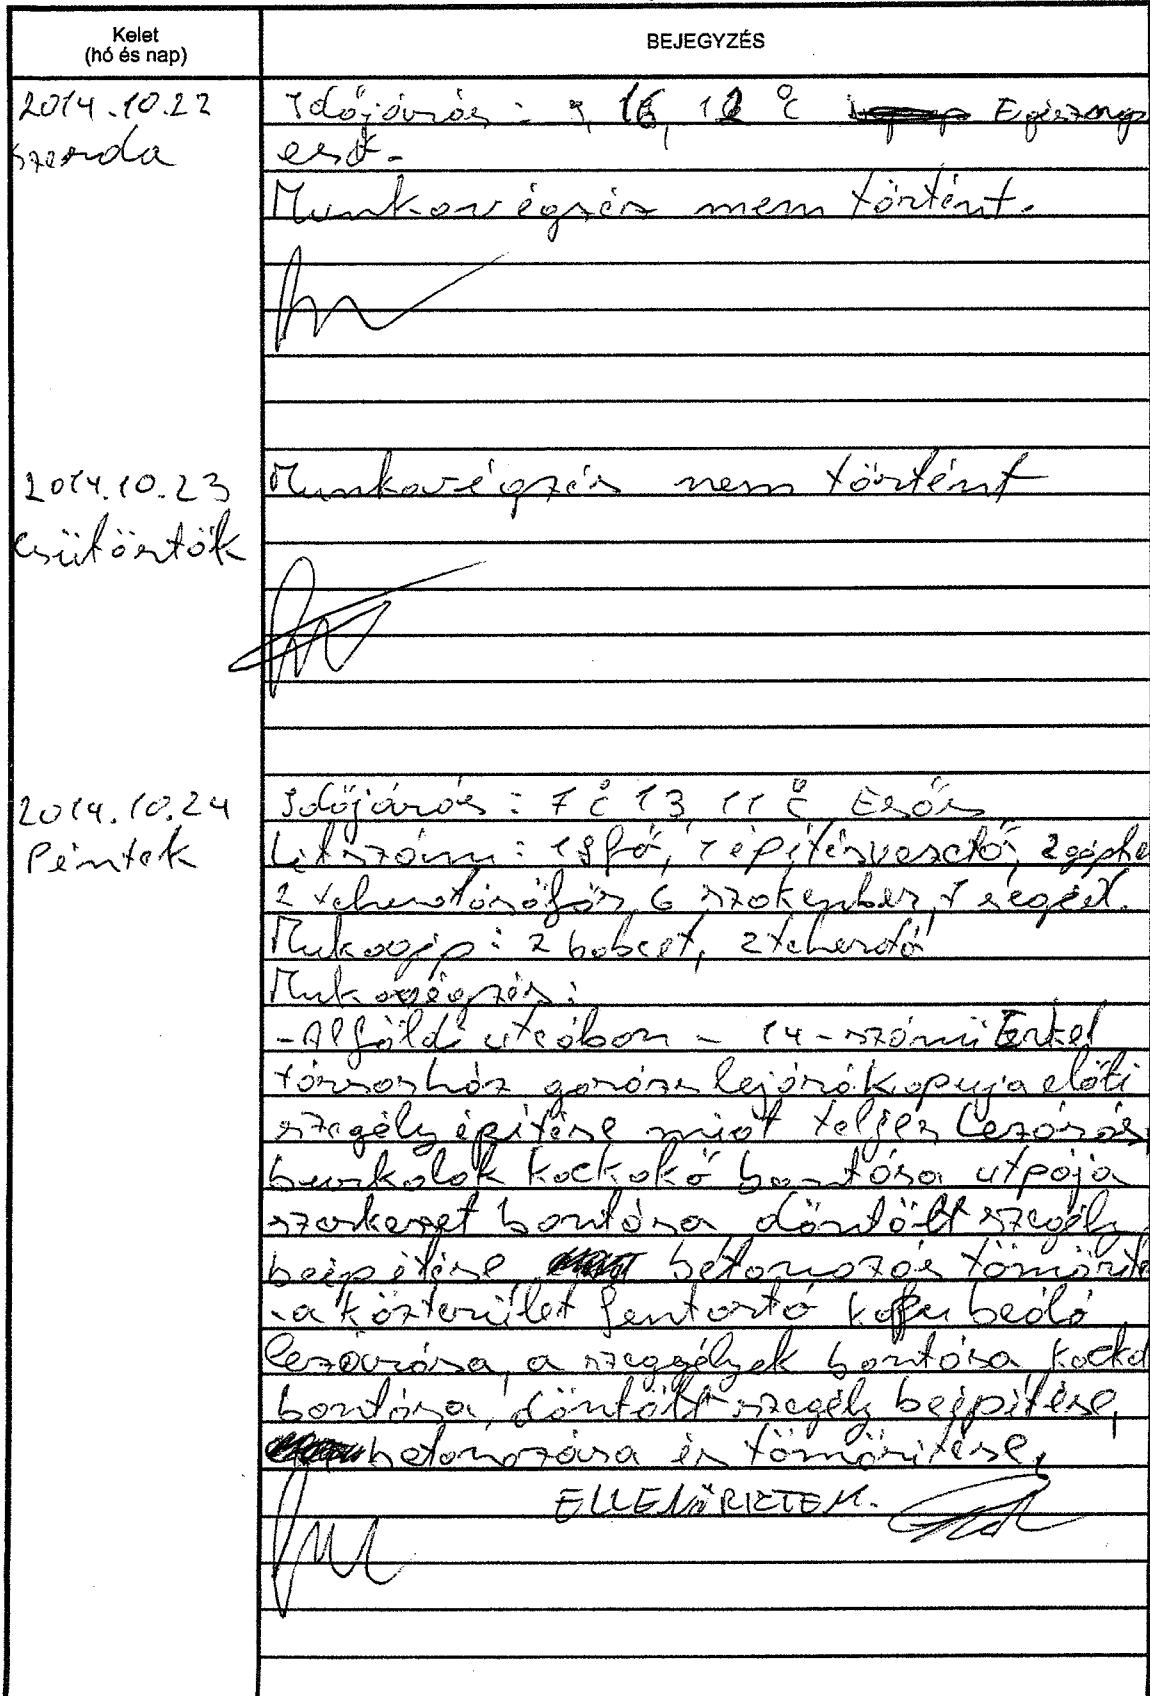 Kelet
(hó és nap)
BEJEGYZÉS
2014.10.22
szerda
Időjárás: 9, 16, 12 °C Egésznap
eső.
Munkavégzés nem történt.
2014.10.23
csütörtök
Munkavégzés nem történt
2014.10.24
Péntek
Időjárás: 7 °C 13, 11 °C, Esős
Létszám: 18 fő, 1 építésvezető, 2 gépke
2 teherautósofőr, 6 szakember, 7 segéd.
Mukagép: 2 bobcat, 2 teherautó
Mukavégzés:
-Alföldi utcában - 14-számú Erkel
társasház garázs lejáró kapuja előti
szegély építése miat teljes lezárás,
burkolok kockakő bontása utpája
szerkezet bontása döntött szegély
beépítése, betonozás tömörite
-a közterület fentartó kapu beálló
lezárása, a szeggélyek bontása kocka
bontása, döntött szegély beépítése,
betonozása és tömörítése,
ELLENŐRIZTEM.